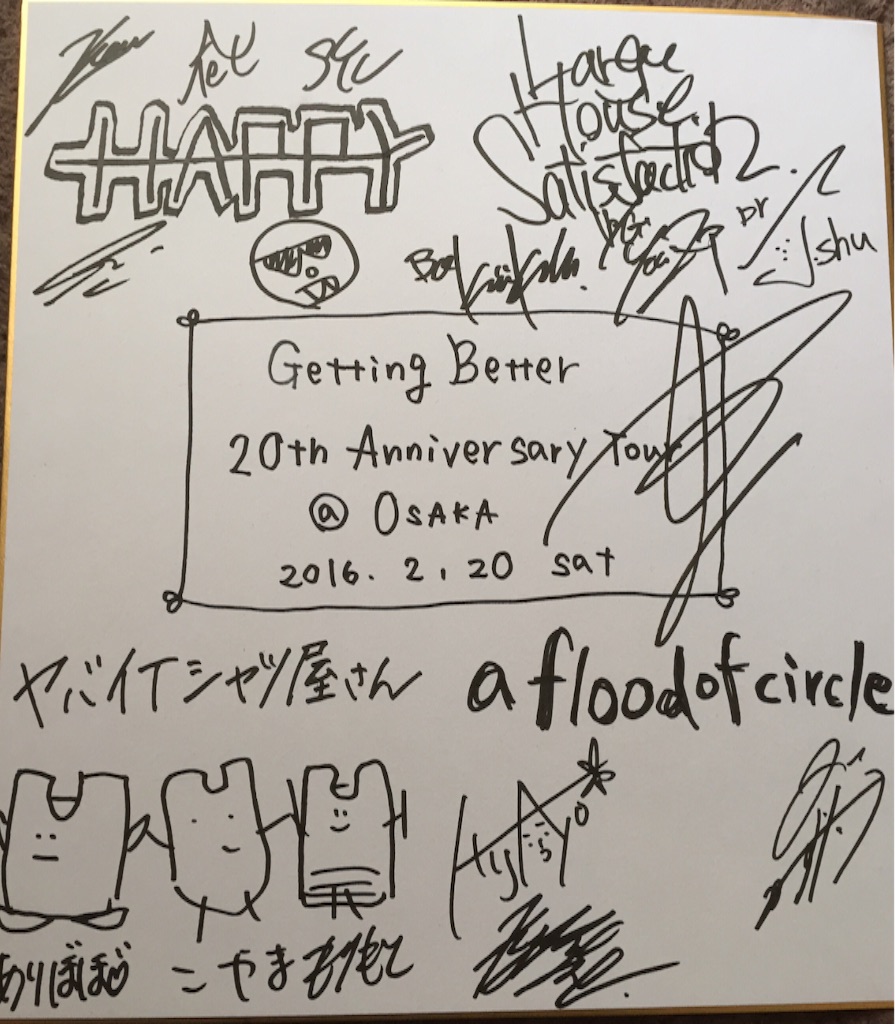 SYU
HAPPY
Large
House
Satisfaction
Dr
shu
Getting Better
20th Anniversary Tour
@ OSAKA
2016. 2. 20 sat
ヤバイTシャツ屋さん
a flood of circle
ありぼぼ
こやま
もりもと